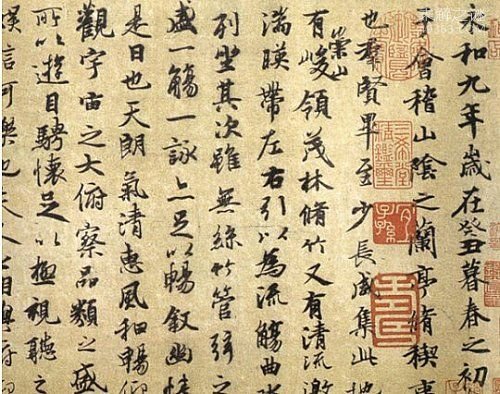 永和九年歲在癸丑暮春之初
于會稽山陰之蘭亭脩稧事
也羣賢畢至少長咸集此地
有崇山峻領茂林脩竹又有清流激
湍暎帶左右引以為流觴曲水
列坐其次雖無絲竹管弦之
盛一觴一詠亦足以暢敘幽情
是日也天朗氣清惠風和暢仰
觀宇宙之大俯察品類之盛
所以遊目騁懷足以極視聽之
娛信可樂也夫人之相與俯仰
未解之谜